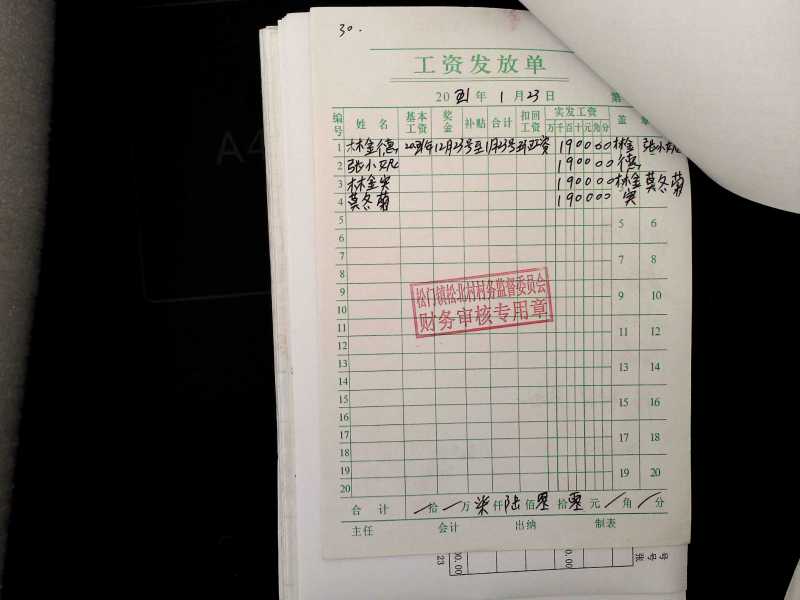 30.
工资发放单
20 21 年 1 月 23 日 第
编号 姓名 基本工资 奖金 补贴 合计 扣回工资 实发工资 盖章
万 千 百 十 元 角 分
1 林金德 12月23号至1月23号 工资 190000 林金德 张小妮
2 张小妮 190000
3 林金实 190000 林金实 莫冬菊
4 莫冬菊 190000
5 5 6
6
7 7 8
8
9 9 10
10
11 11 12
12
13 13 14
14
15 15 16
16
17 17 18
18
19 19 20
20
松门镇松北村村务监督委员会
财务审核专用章
合计 拾 万 柒 仟 陆 佰 零 拾 零 元 角 分
主任 会计 出纳 制表